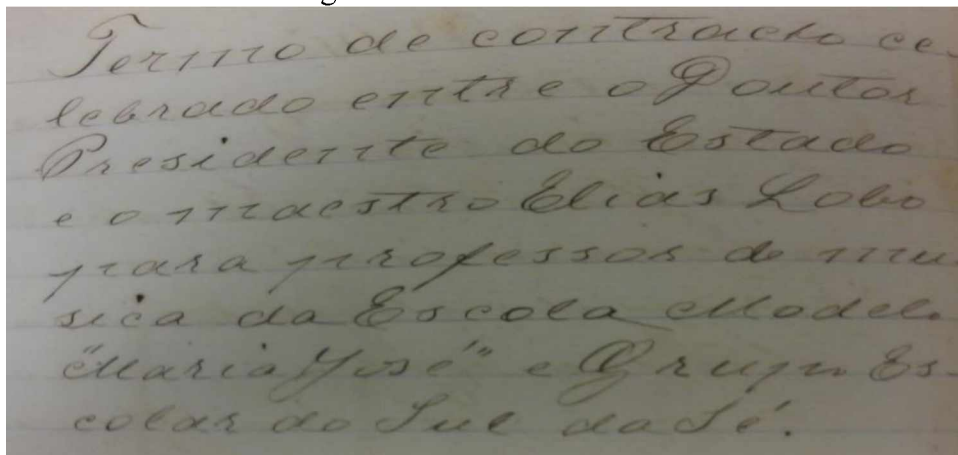 Termo de contracto ce-
lebrado entre o Doutor
Presidente do Estado
e o maestro Elias Lobo
para professor de mu
sica da Escola Modelo
"Maria José" e Grupo Es-
colar do Sul da Sé.